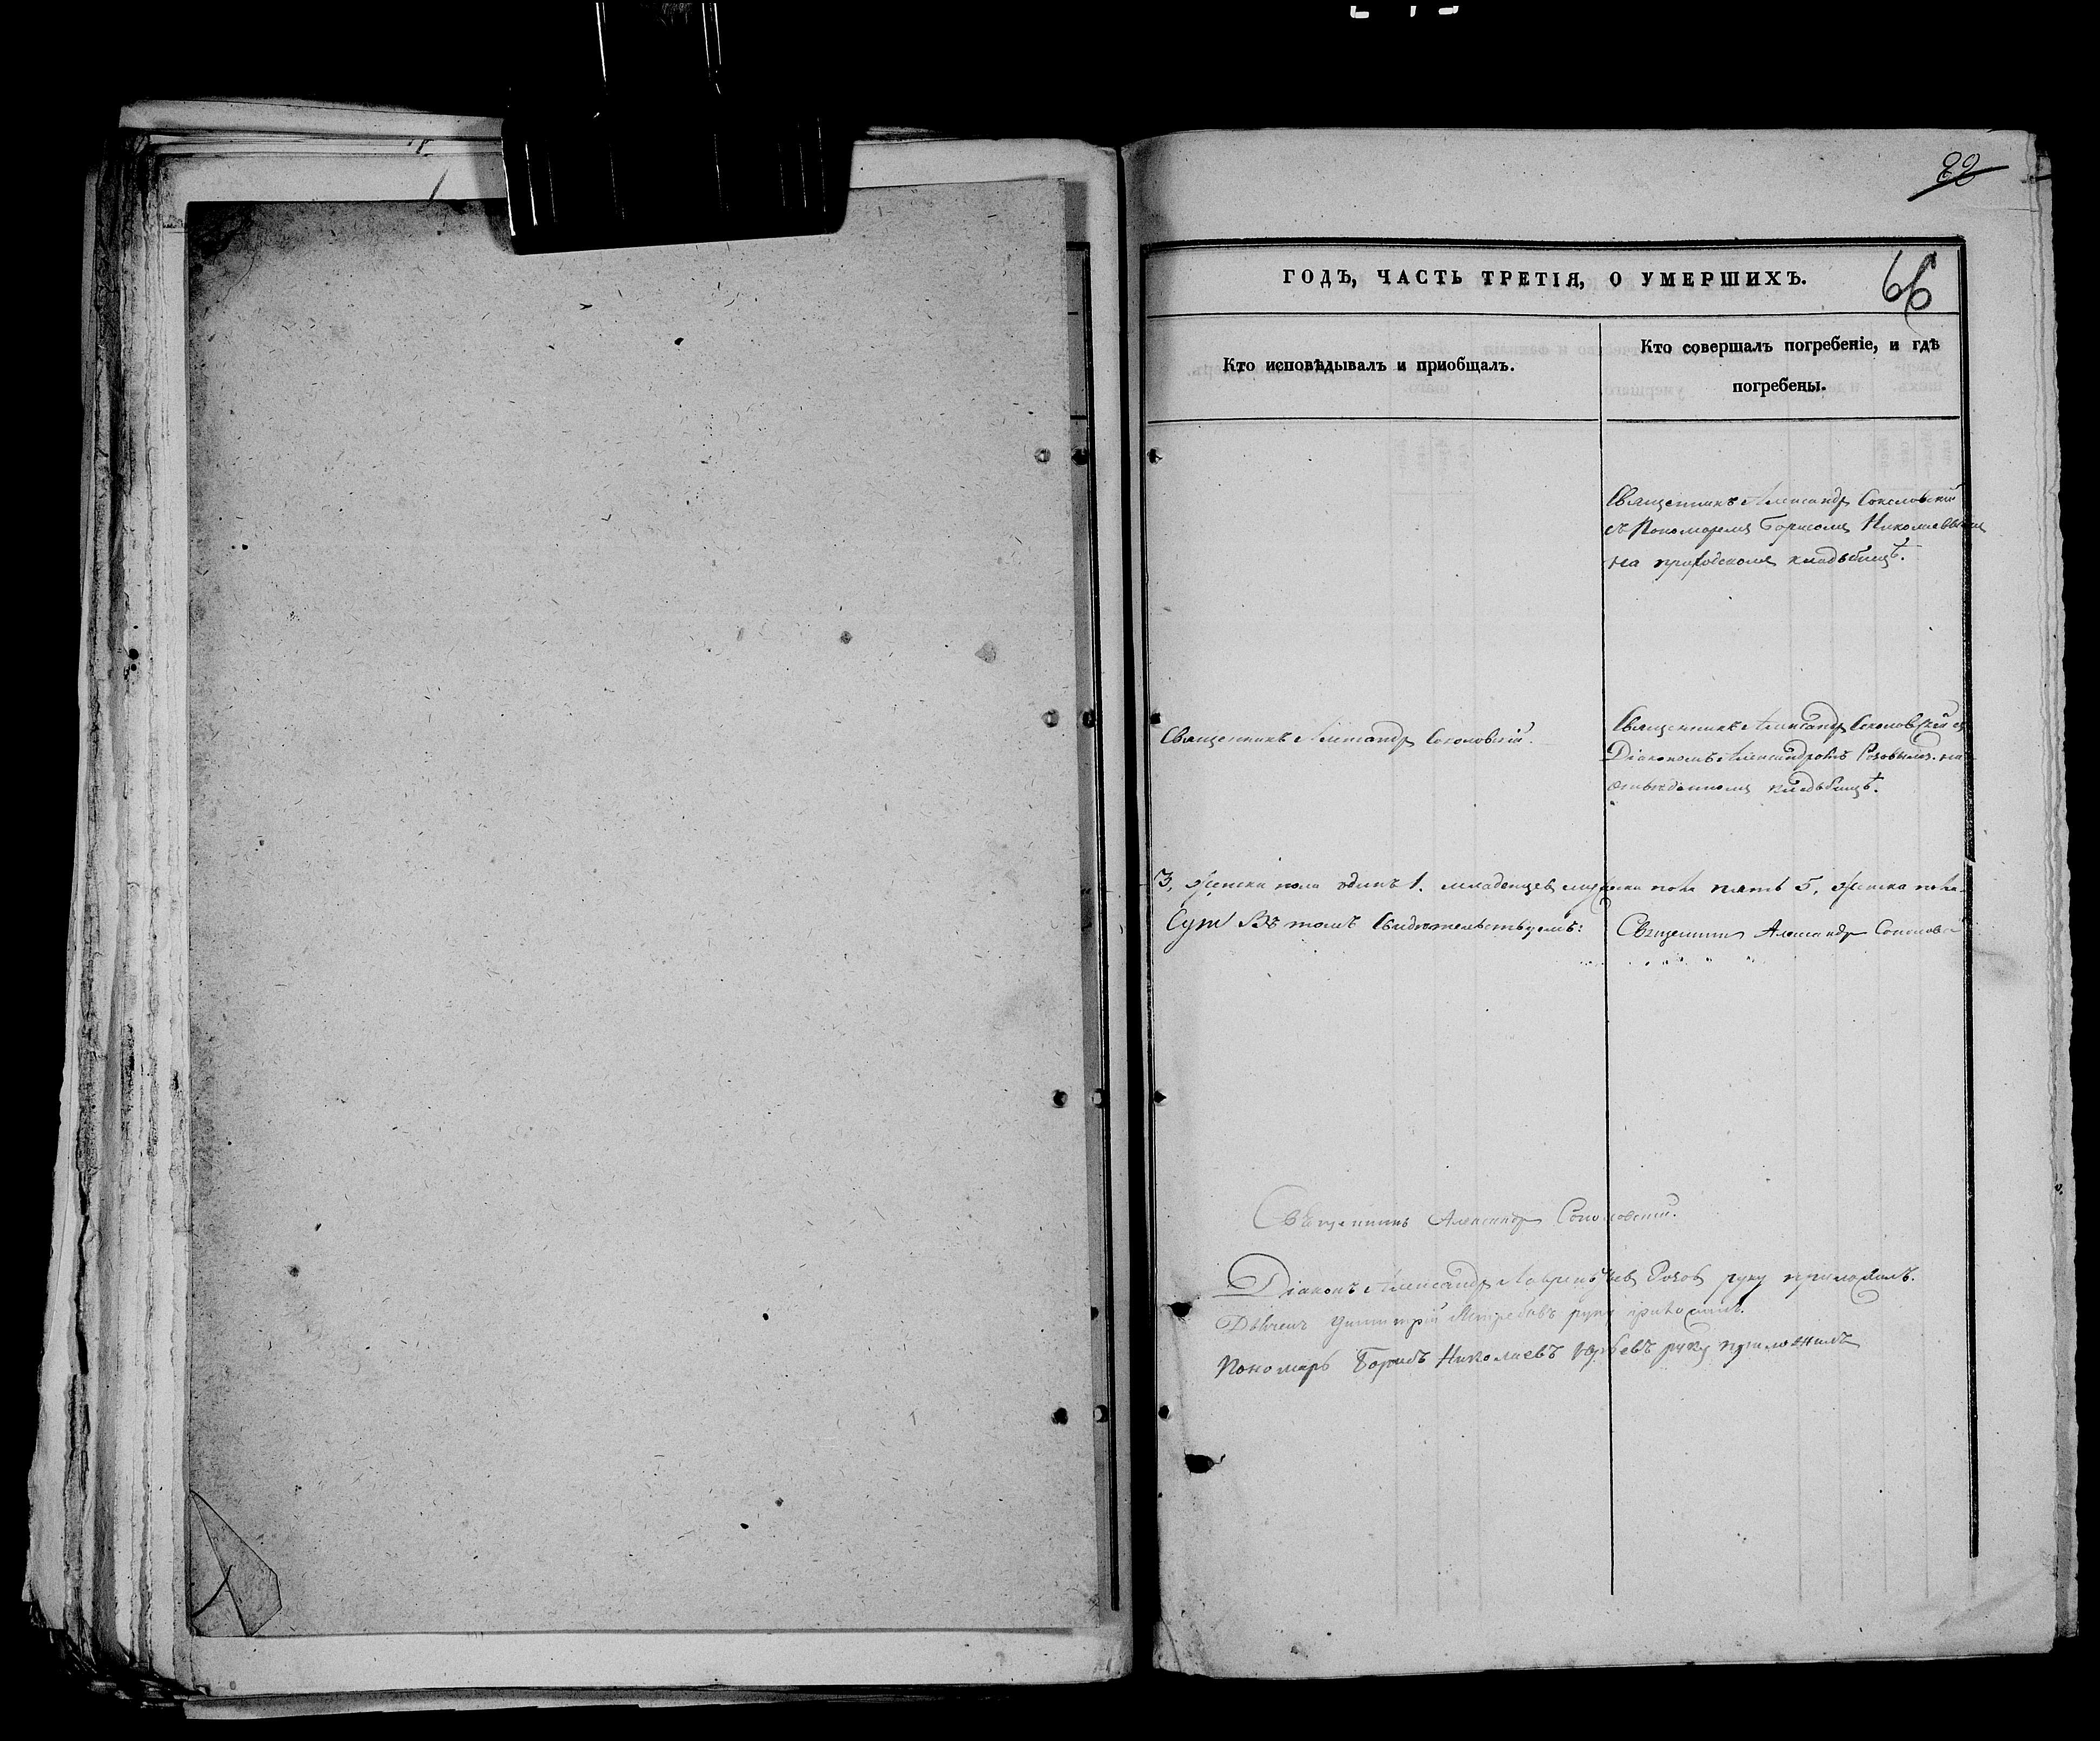 22
ГОДЪ, ЧАСТЬ ТРЕТІЯ, О УМЕРШИХЪ.
66
Кто исповѣдывалъ и приобщалъ.
Кто совершалъ погребеніе, и гдѣ
погребены.
Священникъ Александръ Соколовскій
съ Пономаремъ Борисомъ Николаевымъ
на приходскомъ кладбищѣ.
Священникъ Александръ Соколовскій.
Священникъ Александръ Соколовскій съ
Діакономъ Александромъ Розовымъ на
кладбищѣ.
3, женска пола одинъ 1. младенцевъ мужеска пола пять 5, женска пола
Сут Въ томъ свидѣтельствуемъ: Священникъ Александръ
Священникъ Александръ Соколовскій.
Діаконъ Александръ Розов руку приложилъ.
Дьячекъ Димитрій руку приложилъ.
Пономарь Борисъ Николаевъ Юрьевъ руку приложилъ